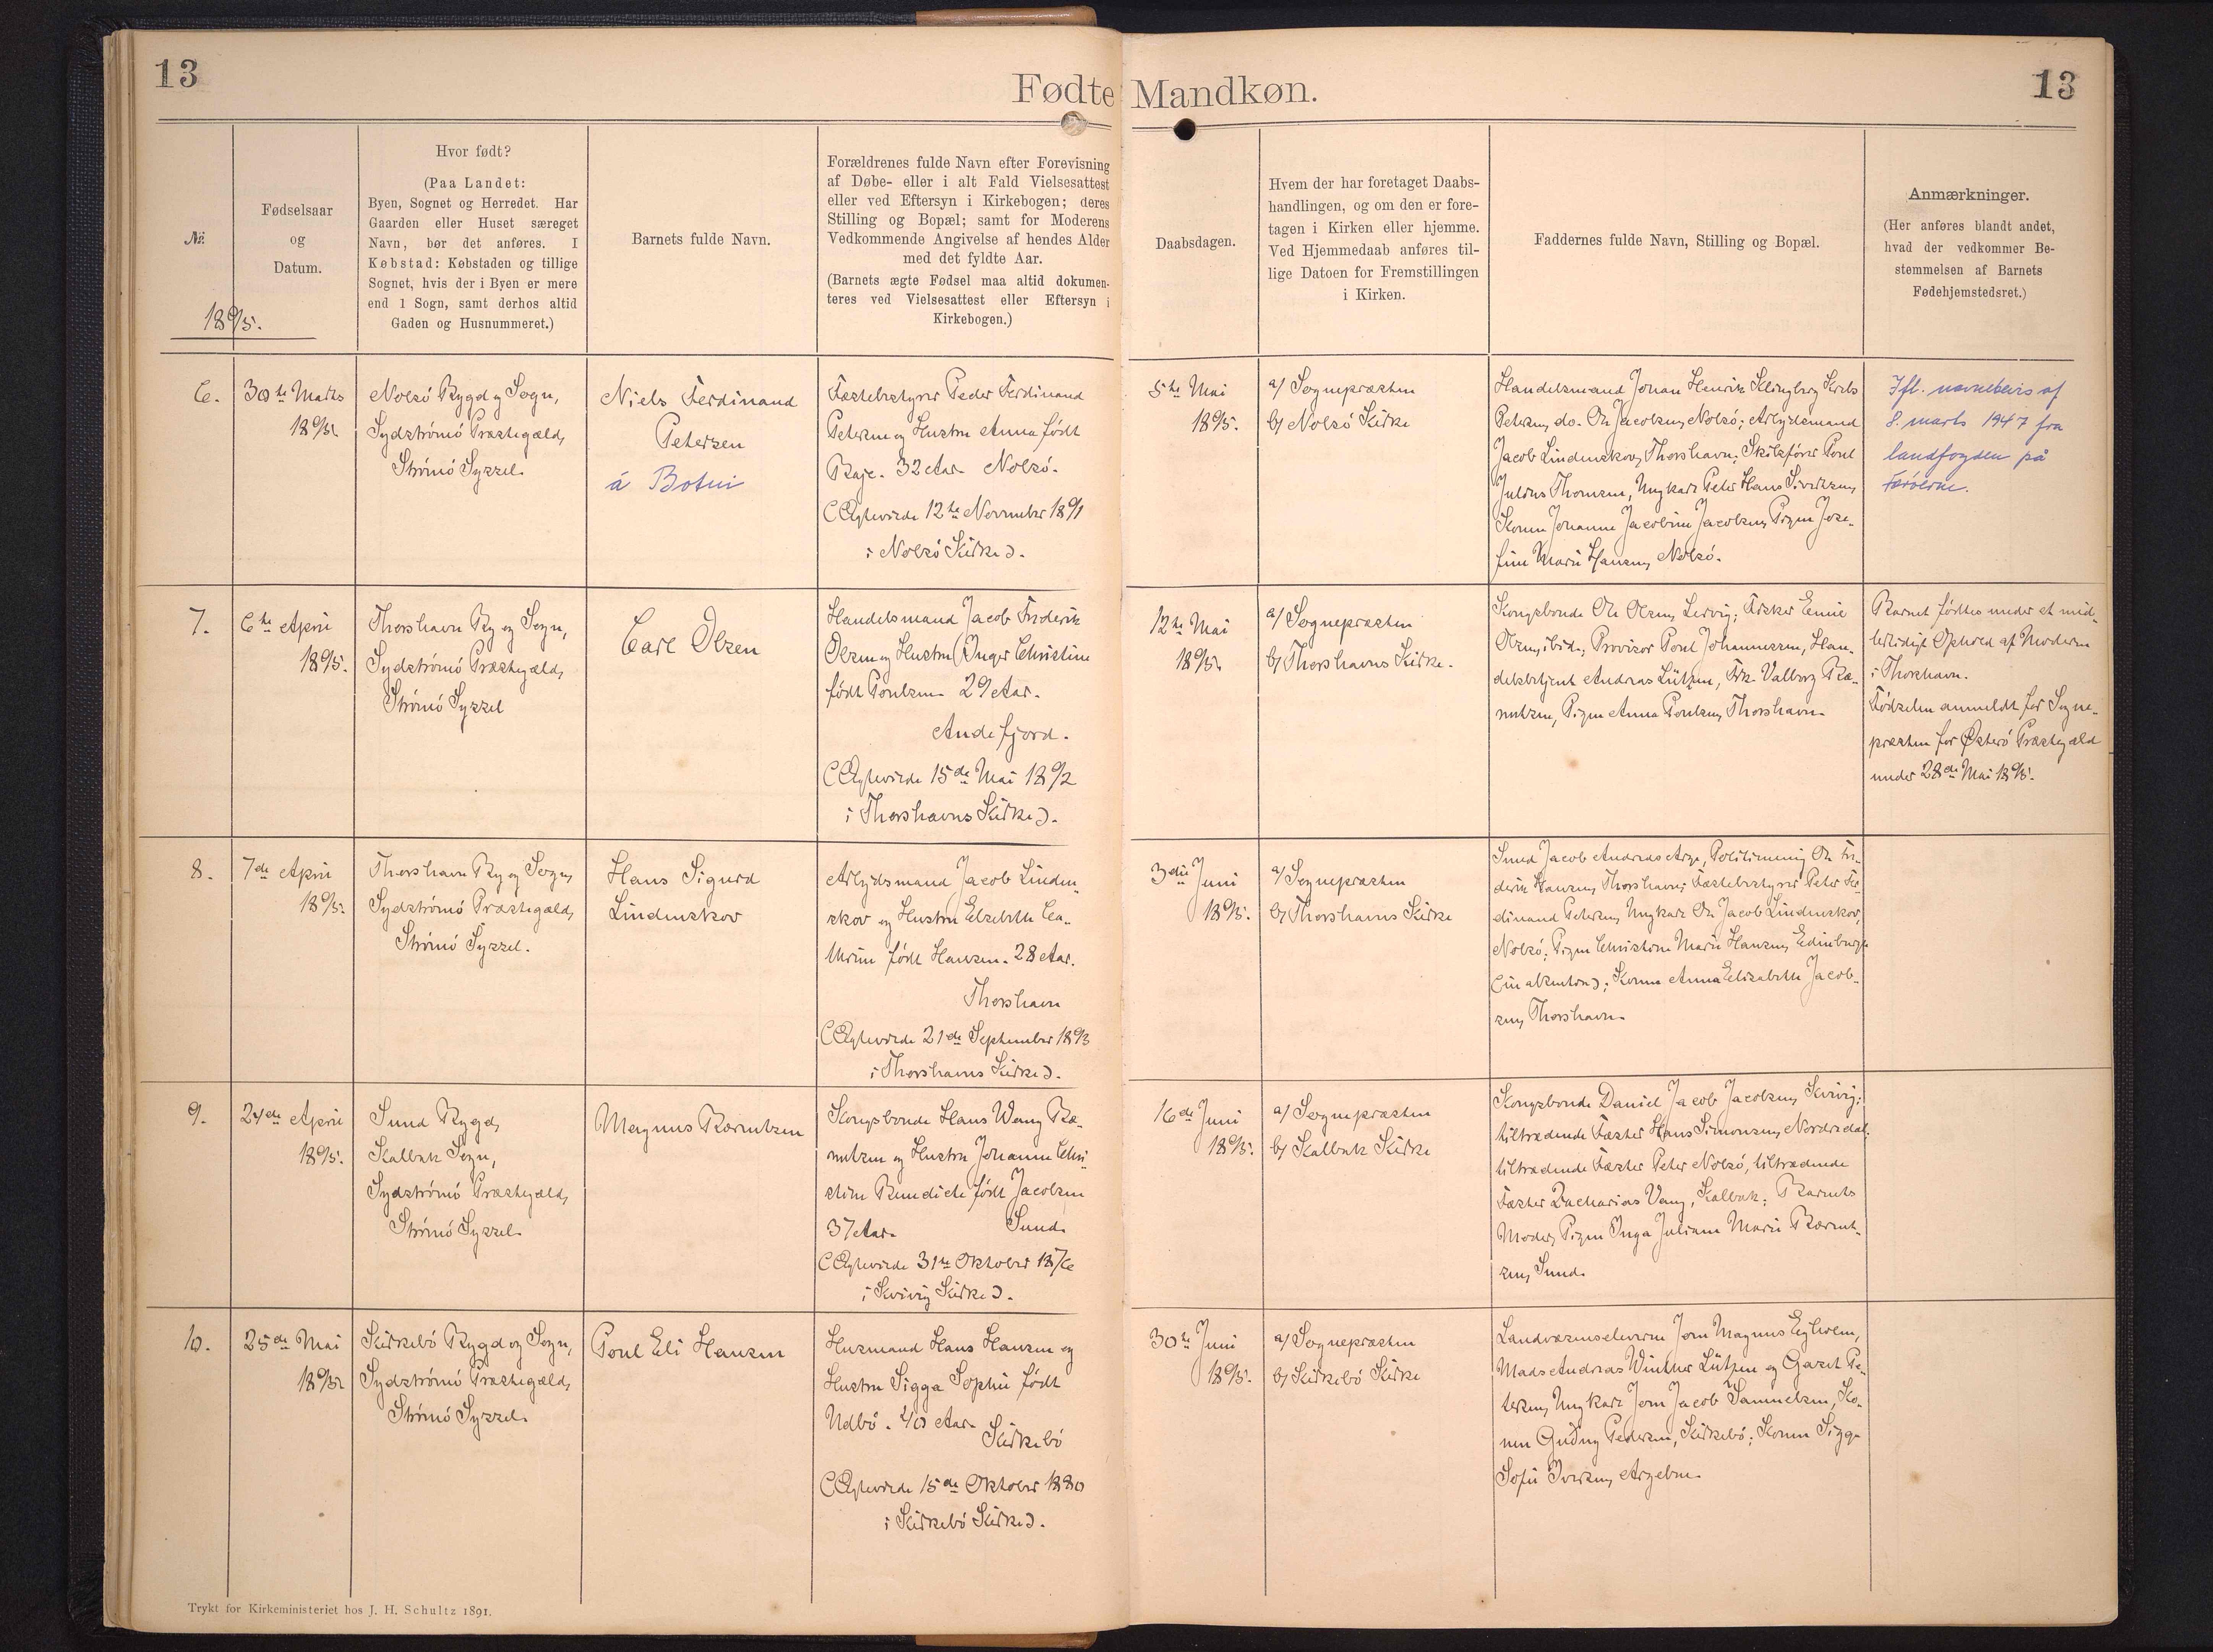 13
Fødte Mandkøn.
13
№
1895.
Fødselsaar
og
Datum.
Hvor født?
(Paa Landet:
Byen, Sognet og Herredet. Har
Gaarden eller Huset særeget
Navn, bør det anføres. I
Købstad: Købstaden og tillige
Sognet, hvis der i Byen er mere
end 1 Sogn, samt derhos altid
Gaden og Husnummeret.)
Barnets fulde Navn.
Forældrenes fulde Navn efter Forevisning
af Døbe- eller i alt Fald Vielsesattest
eller ved Eftersyn i Kirkebogen; deres
Stilling og Bopæl; samt for Moderens
Vedkommende Angivelse af hendes Alder
med det fyldte Aar.
(Barnets ægte Fødsel maa altid dokumen-
teres ved Vielsesattest eller Eftersyn i
Kirkebogen.)
Daabsdagen.
Hvem der har foretaget Daabs-
handlingen, og om den er fore-
tagen i Kirken eller hjemme.
Ved Hjemmedaab anføres til-
lige Datoen for Fremstillingen
i Kirken.
Faddernes fulde Navn, Stilling og Bopæl.
Anmærkninger.
(Her anføres blandt andet,
hvad der vedkommer Be-
stemmelsen af Barnets
Fødehjemstedsret.)
6.
30te Marts
1895.
Nolsö Bygd og Sogn,
Sydströmö Præstegæld,
Strömö Syssel.
Niels Ferdinand
Petersen
á Botni
Fæstebestyrer Peder Ferdinand
Petersen og Hustru Anna født
Baje. 32 Aar. Nolsö.
(Ægteviede 12te November 1891
i Nolsö Kirke).
5te Mai
1895.
a) Sognepræsten
b) Nolsö Kirke
Handelsmand Johan Henrik Klingberg Krels
Petersen, do. Ole Jacobsen, Nolsö; Arbejdsmand
Jacob Lindenskov, Thorshavn; Skibsfører Poul
Julius Thomsen, Ungkarl Peter Hans Sivertsen,
Konen Johanne Jacobine Jacobsen, Pigen Jose-
fine Marie Hansen, Nolsö.
Ifl. navnebevis af
8. marts 1947 fra
landfogden på
Færöerne.
7.
6te April
1895.
Thorshavn By og Sogn,
Sydströmö Præstegæld,
Strömö Syssel
Carl Olsen
Handelsmand Jacob Frederik
Olsen og Hustru Inger Christine
født Poulsen. 29 Aar.
Andefjord.
(Ægteviede 15de Mai 1892
i Thorshavns Kirke).
12te Mai
1895.
a) Sognepræsten
b) Thorshavns Kirke.
Kongsbonde Ole Olsen, Lervig; Fisker Emil
Olsen, ibid., Provisor Poul Johannesen, Han-
delsbetjent Andreas Lützen, Frk. Valborg Bæ-
rentsen, Pigen Anna Poulsen, Thorshavn.
Barnet fødtes under et mid-
lertidigt Ophold af Moderen
i Thorshavn.
Fødselen anmeldt for Sogne-
præsten for Østerö Præstegæld
under 28de Mai 1895.
8.
7de April
1895.
Thorshavn By og Sogn,
Sydströmö Præstegæld,
Strömö Syssel.
Hans Sigurd
Lindenskov
Arbejdsmand Jacob Linden-
skov og Hustru Elsebeth Ca-
thrine født Hansen. 28 Aar.
Thorshavn
(Ægteviede 21de September 1893
i Thorshavns Kirke).
3die Juni
1895.
a) Sognepræsten
b) Thorshavns Kirke
Smed Jacob Andreas Arge, Politimenig Ole Fre-
derik Hansen, Thorshavn; Fæstebestyrer Peter Fer-
dinand Petersen, Ungkarl Ole Jacob Lindenskov,
Nolsö; Pigen Christine Marie Hansen, Edinburgh
(in absentia); Konen Anna Elisabeth Jacob-
sen, Thorshavn.
9.
24de April
1895.
Sund Bygd,
Kalbak Sogn,
Sydströmö Præstegæld,
Strömö Syssel.
Magnus Bærentsen
Kongsbonde Hans Wang Bæ-
rentsen og Hustru Johanne Chri-
stine Benedicte født Jacobsen
37 Aar. Sund.
(Ægteviede 31te Oktober 1876
i Kvivig Kirke).
16de Juni
1895.
a) Sognepræsten
b) Kalbak Kirke
Kongsbonde Daniel Jacob Jacobsen, Kvivig;
tiltrædende Fæster Hans Simonsen, Nordredal;
tiltrædende Fæster Peter Nolsö, tiltrædende
Fæster Zacharias Vang, Kalbak; Barnets
Moder, Pigen Inga Juliane Marie Bærent-
sen, Sund.
10.
25de Mai
1895.
Kirkebö Bygd og Sogn,
Sydströmö Præstegæld,
Strömö Syssel.
Poul Eli Hansen
Husmand Hans Hansen og
Hustru Sigga Sophie født
Udbö. 40 Aar.
Kirkebö
(Ægteviede 15de Oktober 1880
i Kirkebö Kirke).
30te Juni
1895.
a) Sognepræsten
b) Kirkebö Kirke
Landvæsenseleverne Joen Magnus Ejholm,
Mads Andreas Winther Lützen og Gazet Pe-
tersen, Ungkarl Joen Jacob Samuelsen, Ko-
nen Gudny Pedersen, Kirkebö; Konen Sigga
Sofie Iversen, Argebue.
Trykt for Kirkeministeriet hos J. H. Schultz 1891.